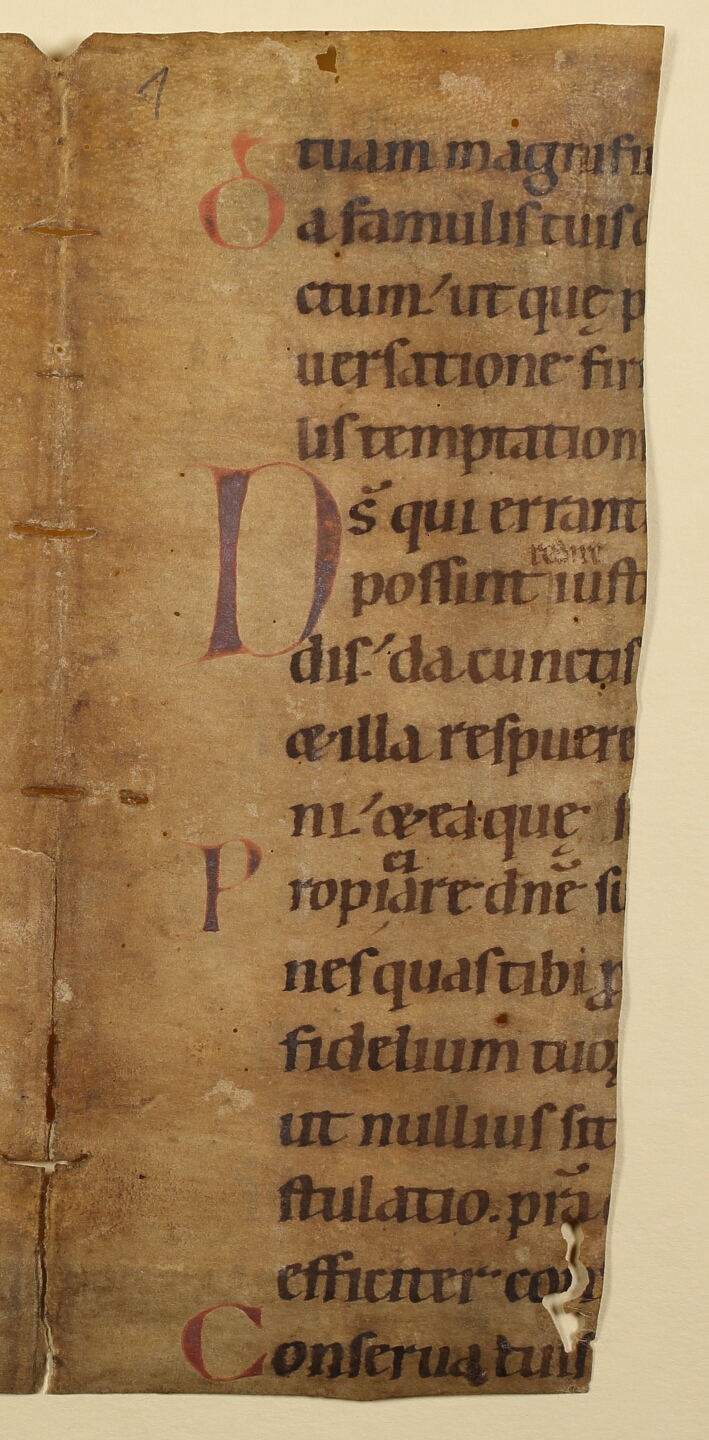 tuam magnifi
Da famulis tuis
ctum ut quę p
uersatione fir
lis temptation
Ds̄ qui errant
redire
possint iust
dis da cunctis
& illa respuere
ni & ea quę s
ci
Propiare dn̄e su
nes quas tibi p
fidelium tuoꝝ
ut nullius sit
stulatio. pr̄a
efficiter con
Conserua tuis